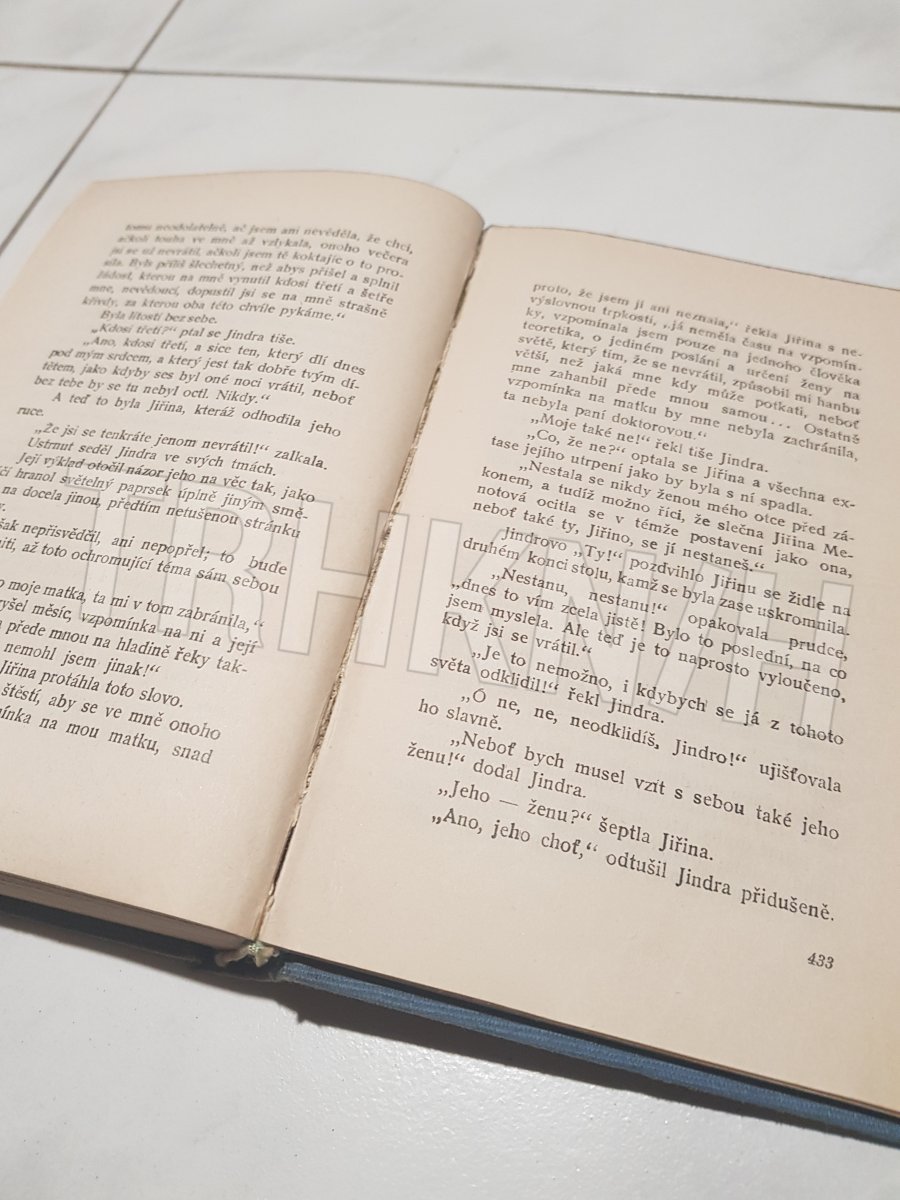 tomu neodolatelné, ač jsem ani nevěděla, že chci,
ačkoli touha ve mně až vzlykala, onoho večera
jsi se už nevrátil, ačkoli jsem tě koktajíc o to pro-
sila. Byls příliš šlechetný, než abys přišel a splnil
žádost, kterou na mně vynutil kdosi třetí a šetře
mne, nevědoucí, dopustil jsi se na mně strašně
křivdy, za kterou oba této chvíle pykáme."
Byla lítostí bez sebe.
„Kdosi třetí?" ptal se Jindra tiše.
„Ano, kdosi třetí, a sice ten, který dlí dnes
pod mým srdcem, a který jest tak dobře tvým dí-
tětem, jako kdyby ses byl oné noci vrátil, neboť
bez tebe by se tu nebyl octl. Nikdy."
A teď to byla Jiřina, kteráž odhodila jeho
ruce.
„Že jsi se tenkráte jenom nevrátil!" zalkala.
Ustrnut seděl Jindra ve svých tmách.
Její výklad otočil názor jeho na věc tak, jako
čí hranol světelný paprsek úplně jiným smě-
na docela jinou, předtím netušenou stránku
šak nepřisvědčil, ani nepopřel; to bude
niti, až toto ochromující téma sám sebou
o moje matka, ta mi v tom zabránila,"
vyšel měsíc, vzpomínka na ni a její
a přede mnou na hladině řeky tak-
nemohl jsem jinak!"
Jiřina protáhla toto slovo.
štěstí, aby se ve mně onoho
mínka na mou matku, snad
proto, že jsem jí ani neznala," řekla Jiřina s ne-
výslovnou trpkostí, „já neměla času na vzpomín-
ky, vzpomínala jsem pouze na jednoho člověka
teoretika, o jediném poslání a určení ženy na
světě, který tím, že se nevrátil, způsobil mi hanbu
větší, než jaká mne kdy může potkati, neboť
mne zahanbil přede mnou samou... Ostatně
vzpomínka na matku by mne nebyla zachránila,
ta nebyla paní doktorovou."
„Moje také ne!" řekl tiše Jindra.
„Co, že ne?" optala se Jiřina a všechna ex-
tase jejího utrpení jako by byla s ní spadla.
„Nestala se nikdy ženou mého otce před zá-
konem, a tudíž možno říci, že slečna Jiřina Me-
notová ocitla se v témže postavení jako ona,
neboť také ty, Jiřino, se jí nestaneš."
Jindrovo „Ty!" pozdvihlo Jiřinu se židle na
druhém konci stolu, kamž se byla zase uskromnila.
„Nestanu, nestanu!" opakovala prudce,
„dnes to vím zcela jistě! Bylo to poslední, na co
jsem myslela. Ale teď je to naprosto vyloučeno,
když jsi se vrátil."
„Je to nemožno, i kdybych se já z tohoto
světa odklidil!" řekl Jindra.
„Ó ne, ne, neodklidíš, Jindro!" ujišťovala
ho slavně.
„Neboť bych musel vzít s sebou také jeho
ženu!" dodal Jindra.
„Jeho — ženu?" šeptla Jiřina.
„Ano, jeho choť," odtušil Jindra přidušeně.
433
TRHKNIH